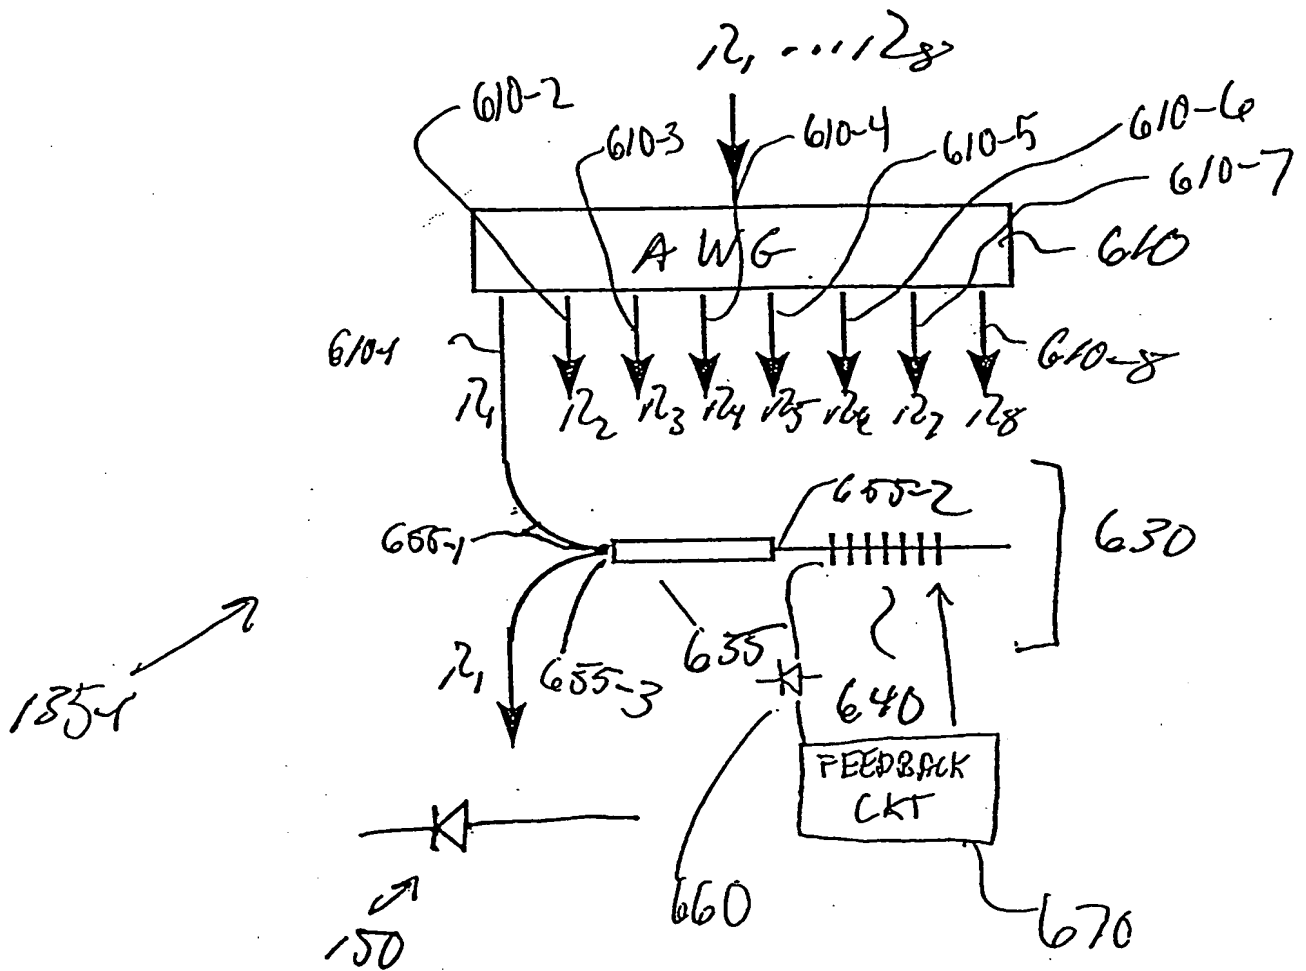 λ1 ... λ8
610-2
610-3
610-4
610-5
610-6
610-7
AWG
610
610-1
610-8
λ1
λ2 λ3 λ4 λ5 λ6 λ7 λ8
655-2
655-1
630
655
λ1
655-3
640
135-1
FEEDBACK
CKT
660
150
670